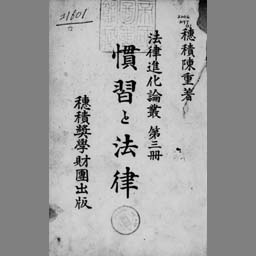 穗積陳重著
法律進化論叢 第三冊
慣習と法律
穗積奬學財團出版
21601